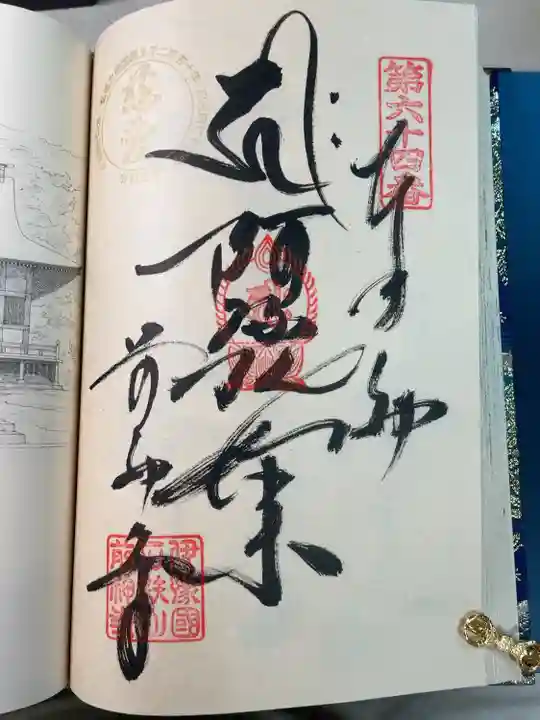 第六十四番
奉拝
阿弥陀如来
前神寺
伊豫國
石鉄山
前神寺